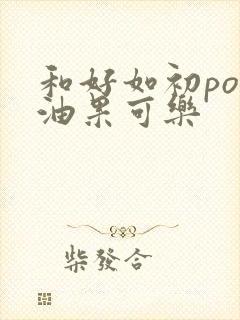 和好如初po
油果可樂
柴發合